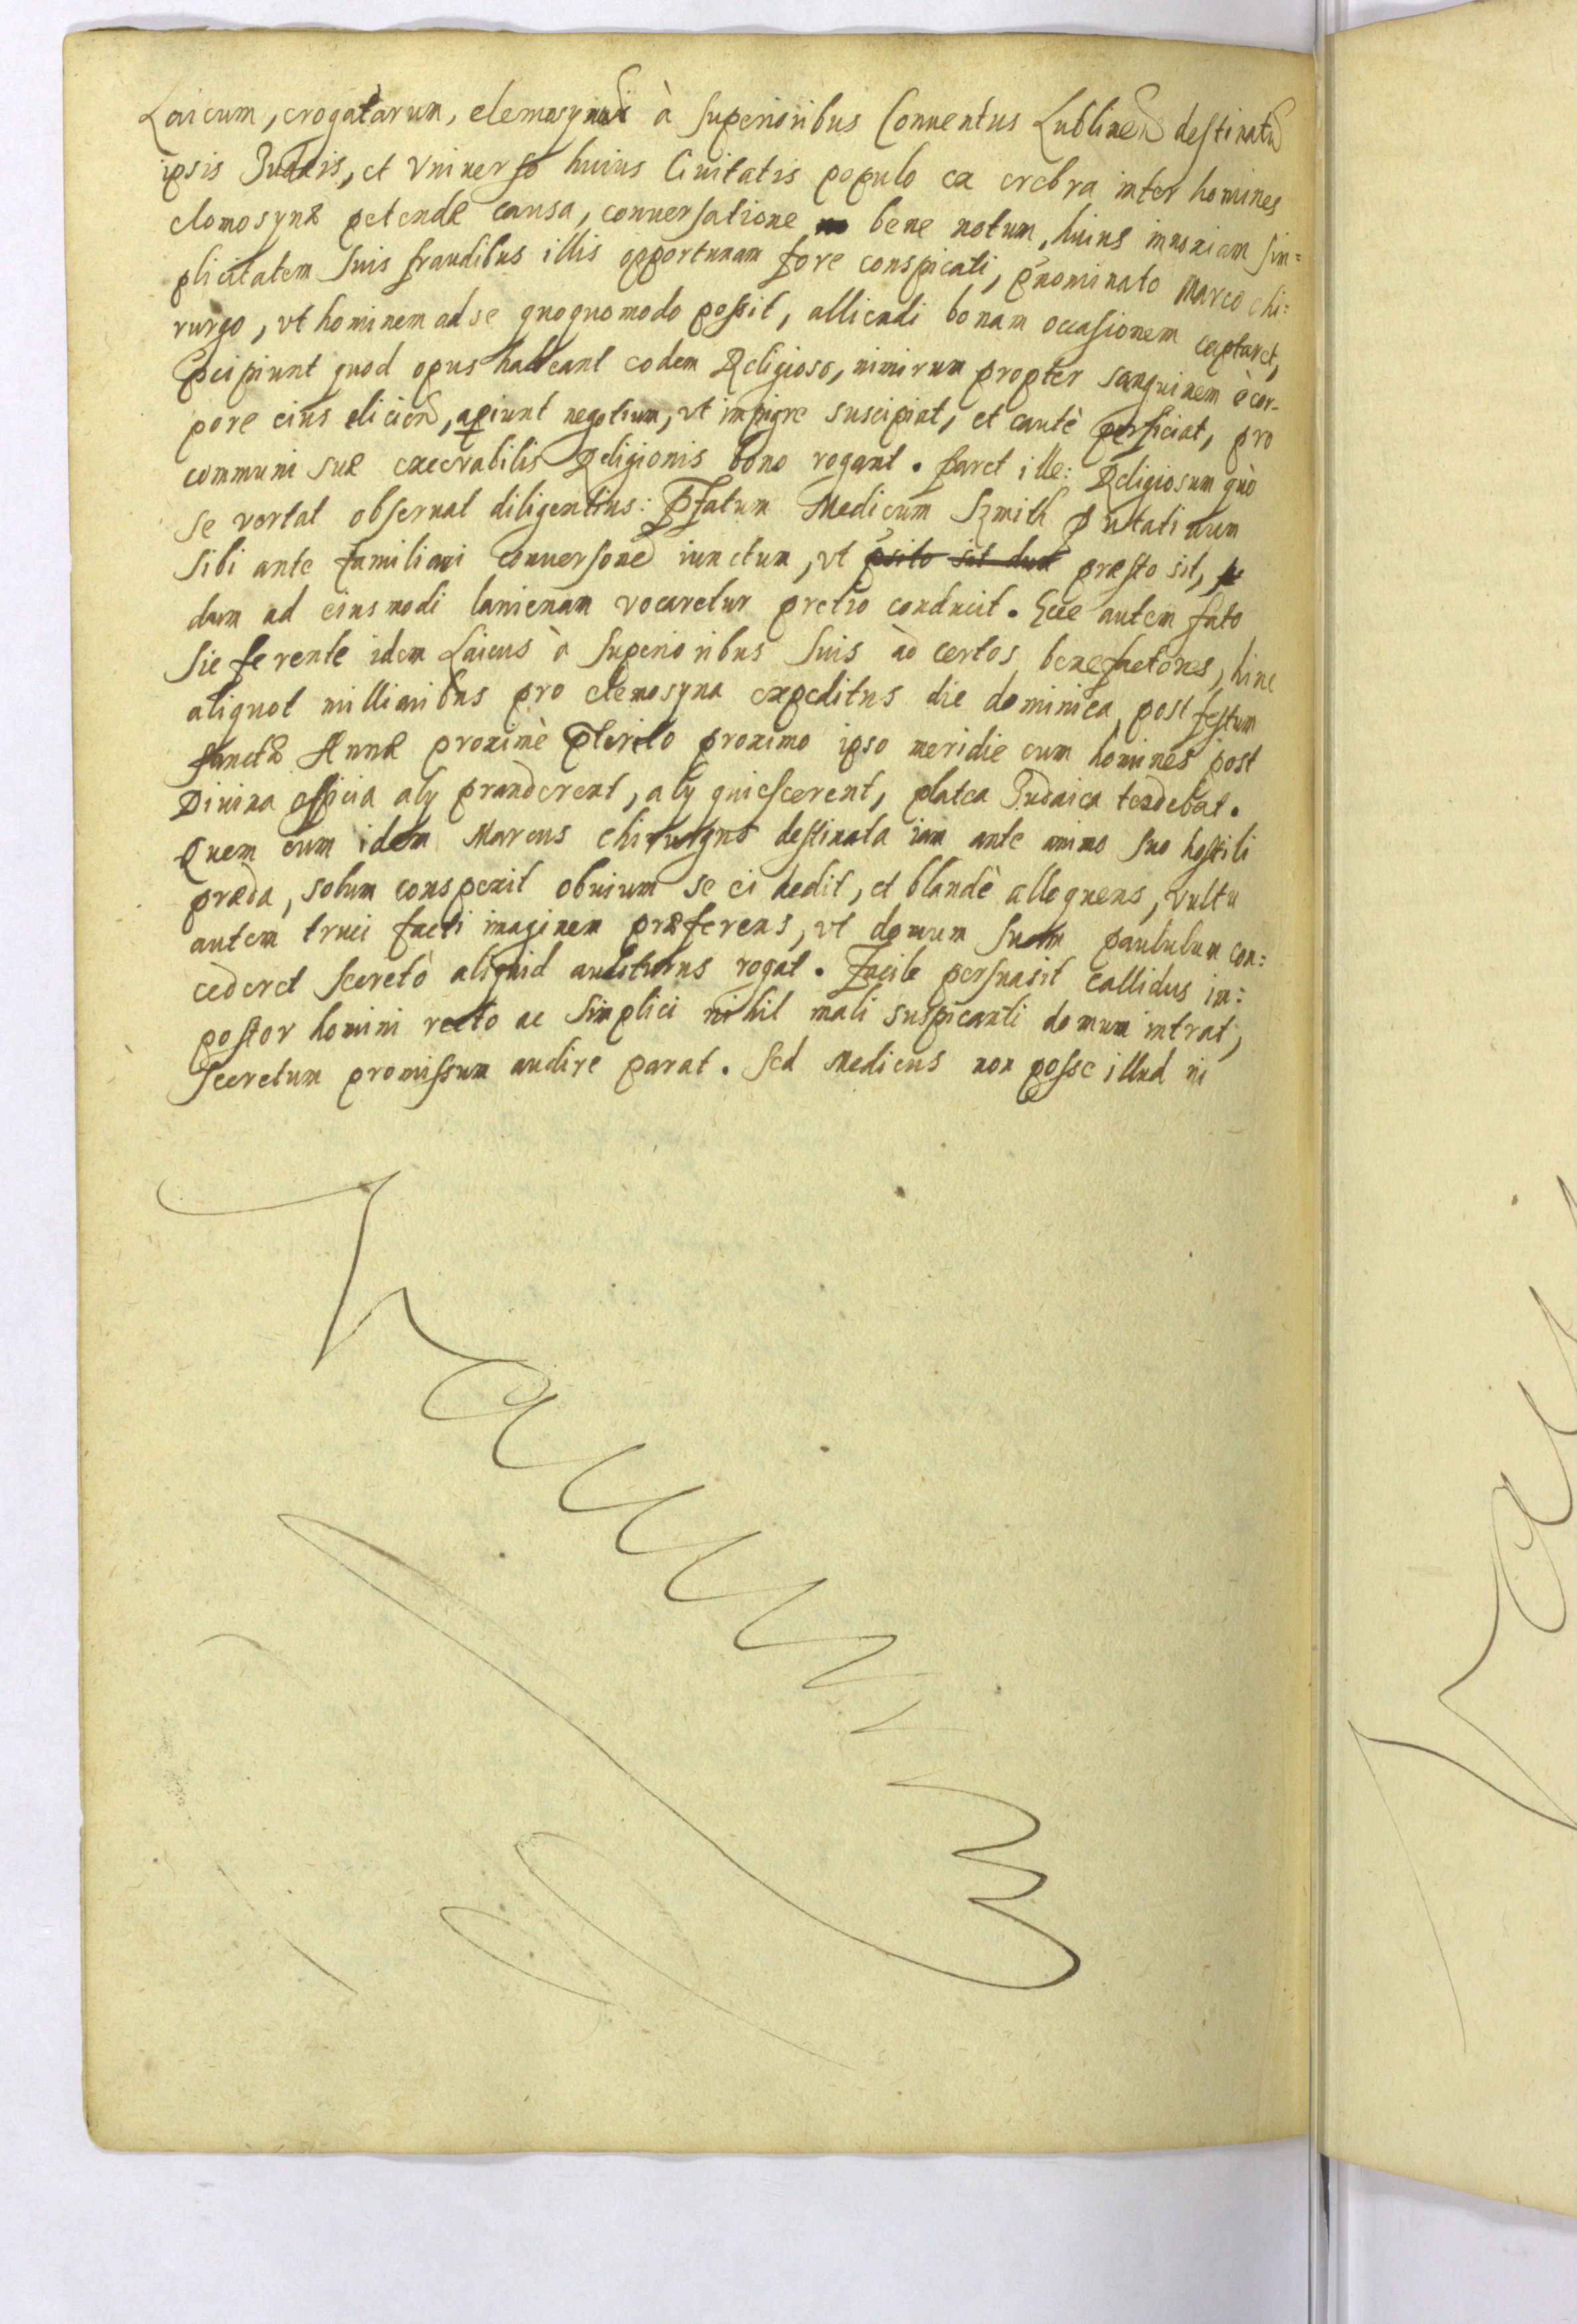 Laicum, erogatarum, elemosynarū à Superioribus Conuentus Lublinen destinatū
ipsis Iudæis, et Vniuerso huius Ciuitatis populo ex crebra inter homines
elemosynæ petendæ causa, conuersatione bene notum, huius innoxiam sim=
plicitatem suis fraudibus illis opportunam fore conspicati, pnominato Marco chi:
rurgo, vt hominem ad se quoquomodo possit, alliciendi bonam occasionem captaret,
Pcipiunt quod opus habeant eodem Religioso, nimirum propter sanguinem è cor-
pore eius eliciend, apiunt negotium, vt impigre suscipiat, et cautè perficiat, pro
communi suæ execrabilis Religionis bono rogant. Paret ille: Religiosum quò
se vertat obseruat diligentius: Pfatum Medicum Szmith putatiuum
sibi ante familiari conuersone iunctum, vt præsto sit,
dum ad eiusmodi lanienam vocaretur pretio conducit. Ecce autem fato
sic ferente idem Laicus à Superioribus suis ad certos benefactores, hinc
aliquot milliaribus pro elemosyna expeditus die dominica post festum
sanctæ Annæ proximè Pterito proximo ipso meridie cum homines post
Diuina officia alÿ pranderent, alÿ quiescerent, platea Iudaica tendebat.
Quem cum idem Marcus chirurgus destinata iam ante animo suo hostili
præda, solum conspexit obuium se ei dedit, et blandè alloquens, vultu
autem truci facti imaginem præferens, vt domum suam paululum con:
cederet secretò aliquid auditurus rogat. Facile persuasit callidus im:
postor homini recto ac simplici nihil mali suspicanti domum intrat,
secretum promissum audire parat. Sed Medicus non posse illud ni